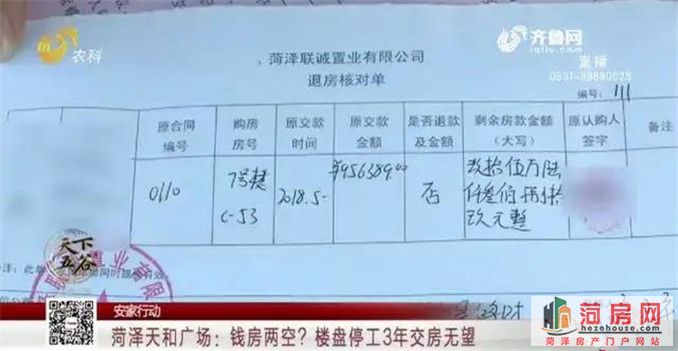 农科
齐鲁网
iqilu.com
直播
0531-88880028
菏泽联诚置业有限公司
退房核对单
编号: 111
原合同编号 购房房号 原交款时间 原交款金额 是否退款及金额 剩余房款金额(大写) 原认购人签字 备注
0110 7号楼 C-53 2018.5- ¥956389.00 否 玖拾伍万陆仟叁佰捌拾玖元整
天下五谷
置业有限
安家行动
菏泽天和广场:钱房两空?楼盘停工3年交房无望
菏房网
www.hezehouse.com
菏泽房产门户网站